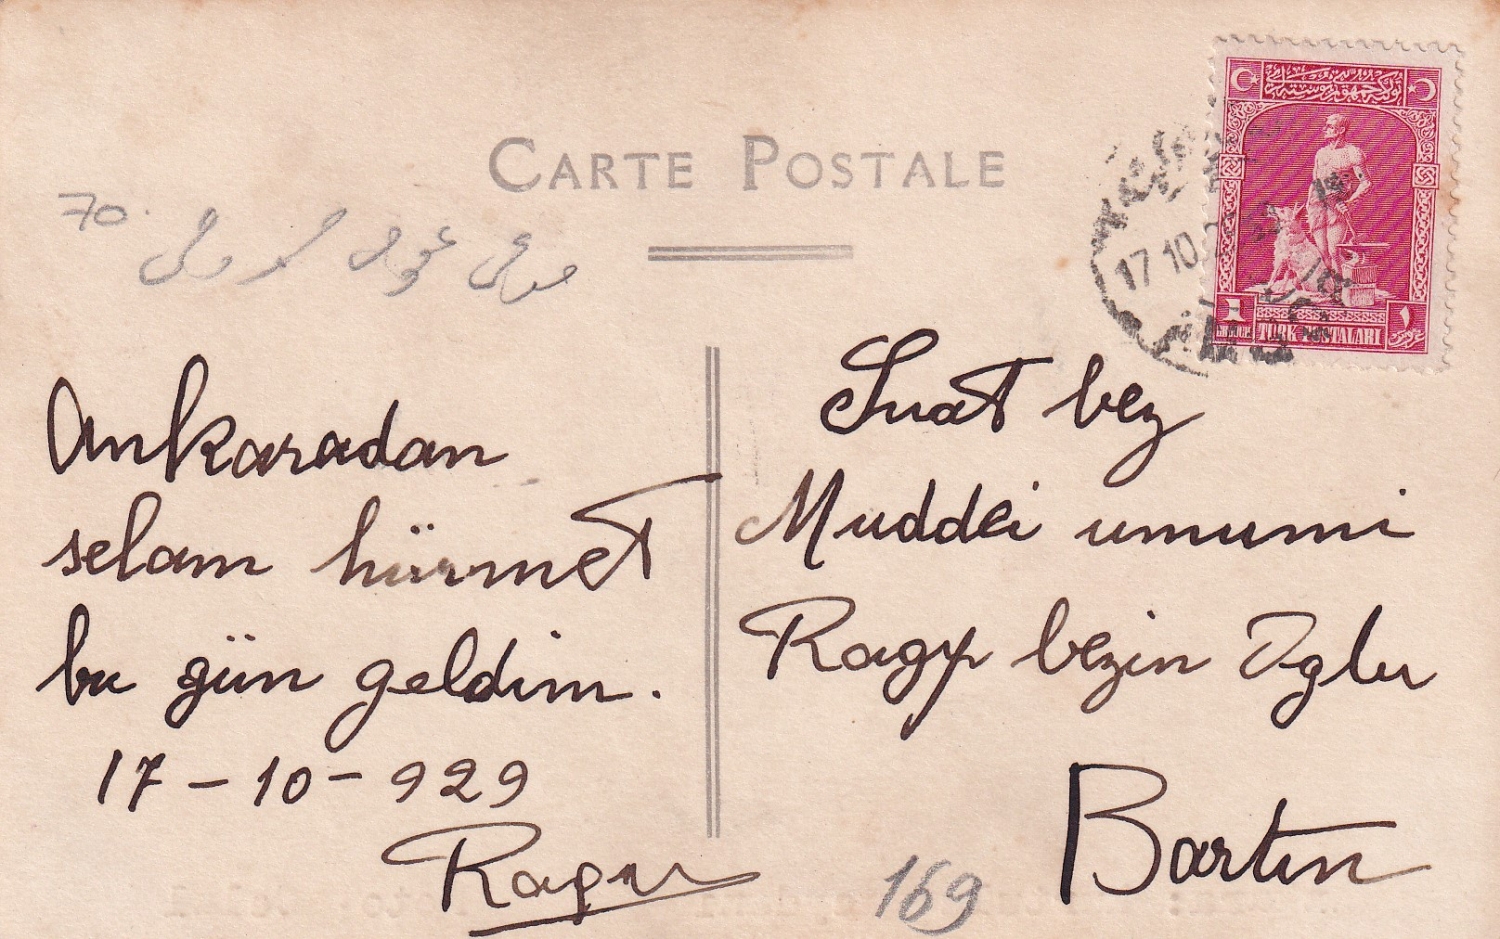 CARTE POSTALE
70.
Ankaradan
selam hürmet
bu gün geldim.
17-10-929
Suat bey
Muddei umumi
Ragıp beyin Oglu
Bartın
169
17 10
1
TÜRK POSTALARI
١